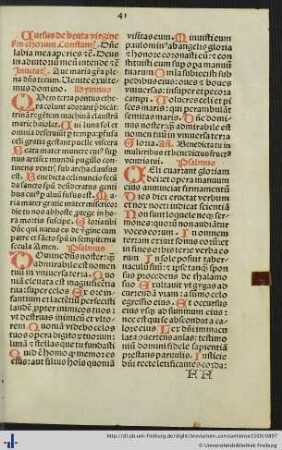 41
Cursus de beata virgine
Dñe
labia mea aperies
Deus
in adiutoriũ meũ intende
Aue maria gra ple
na dñs tecum. Venite exulte
mus domino. Hymnus
QVem terra pontus ethe
ra colunt adorant
trinã regẽtem machinã claustrũ
marie baiulat. Qui luna sol et
omnia deseruiũt p tempa: pfusa
celi gratia gestant puelle viscera
Beata mater munere cuius su
pnus artifex mundũ pugillo con
tinens
ventris sub archa clausus
est. Benedicta celi nuncio fecun
da sancto spũ desideratus genti
bus
fusus est. Ma
ria mater gratie mater misericor
die tu nos ab hoste protege in ho
ra mortis suscipe. Gloria tibi
dñe qui natus es de virgine cum
patre et sancto spũ in sempiterna
secula Amen. Psalmus
DOmine dñs noster: q̃
admirabile est nomen
tuũ in vniuersa terra. Quo
niã eleuata est magnificẽtia
tua: super celos. Ex ore in
fantium et lactẽtiũ perfecisti
laudẽ ppter inimicos tuos:
vt destruas inimicũ et vlto
rem. Quoniã videbo celos
tuos opera digitorũ tuorum:
lunã et stellas que tu fundasti
Quid ẽ homo q memor es
eius: aut filius hois quoniã
visitas eum. Minuisti eum
paulominus ab angelis gloria
et honore coronasti eũ: et con
stituisti eum sup opa manuũ
tuarum. Omnia subiecisti sub
pedibus eius: oues et boues
vniuersas: insuper et pecora
campi. Volucres celi et pi
sces maris: qui perambulãt
semitas maris. Dñe domi
nus noster: q̃ admirabile est
nomen tuũ in vniuersa terra
Benedicta tu in
mulieribus et benedictus fruct
ventris tui. Psalmus
CEli enarrant gloriam
dei: et opera manuum
eius annunciat firmamentũ
Dies diei eructat verbum
et nox nocti indicat scientiã
Non sunt loquele neq ser
mones: quorũ non audiãtur
voces eorum. In omnem
terram exiuit sonus eorũ: et
in fines orbis terre verba eo
rum. In sole posuit taber
naculũ suũ: et ipse tanq̃ spon
sus procedens de thalamo
suo. Exultauit vt gigas ad
currendã viam: a summo celo
egressio eius. Et occursus
eius vsq ad summum eius:
nec est qui se abscondat a ca
lore eius. Lex dñi immacu
lata cõuertens aias: testimo
niũ domini fidele sapientiã
prestans paruulis. Iusticie
dñi recte letificantes corda:
HH
http://dl.ub.uni-freiburg.de/diglit/breviarium_constantiense1509/0807
© Universitätsbibliothek Freiburg